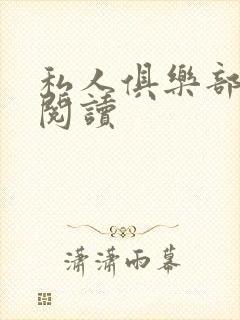 私人俱樂部
閱讀
瀟瀟雨幕